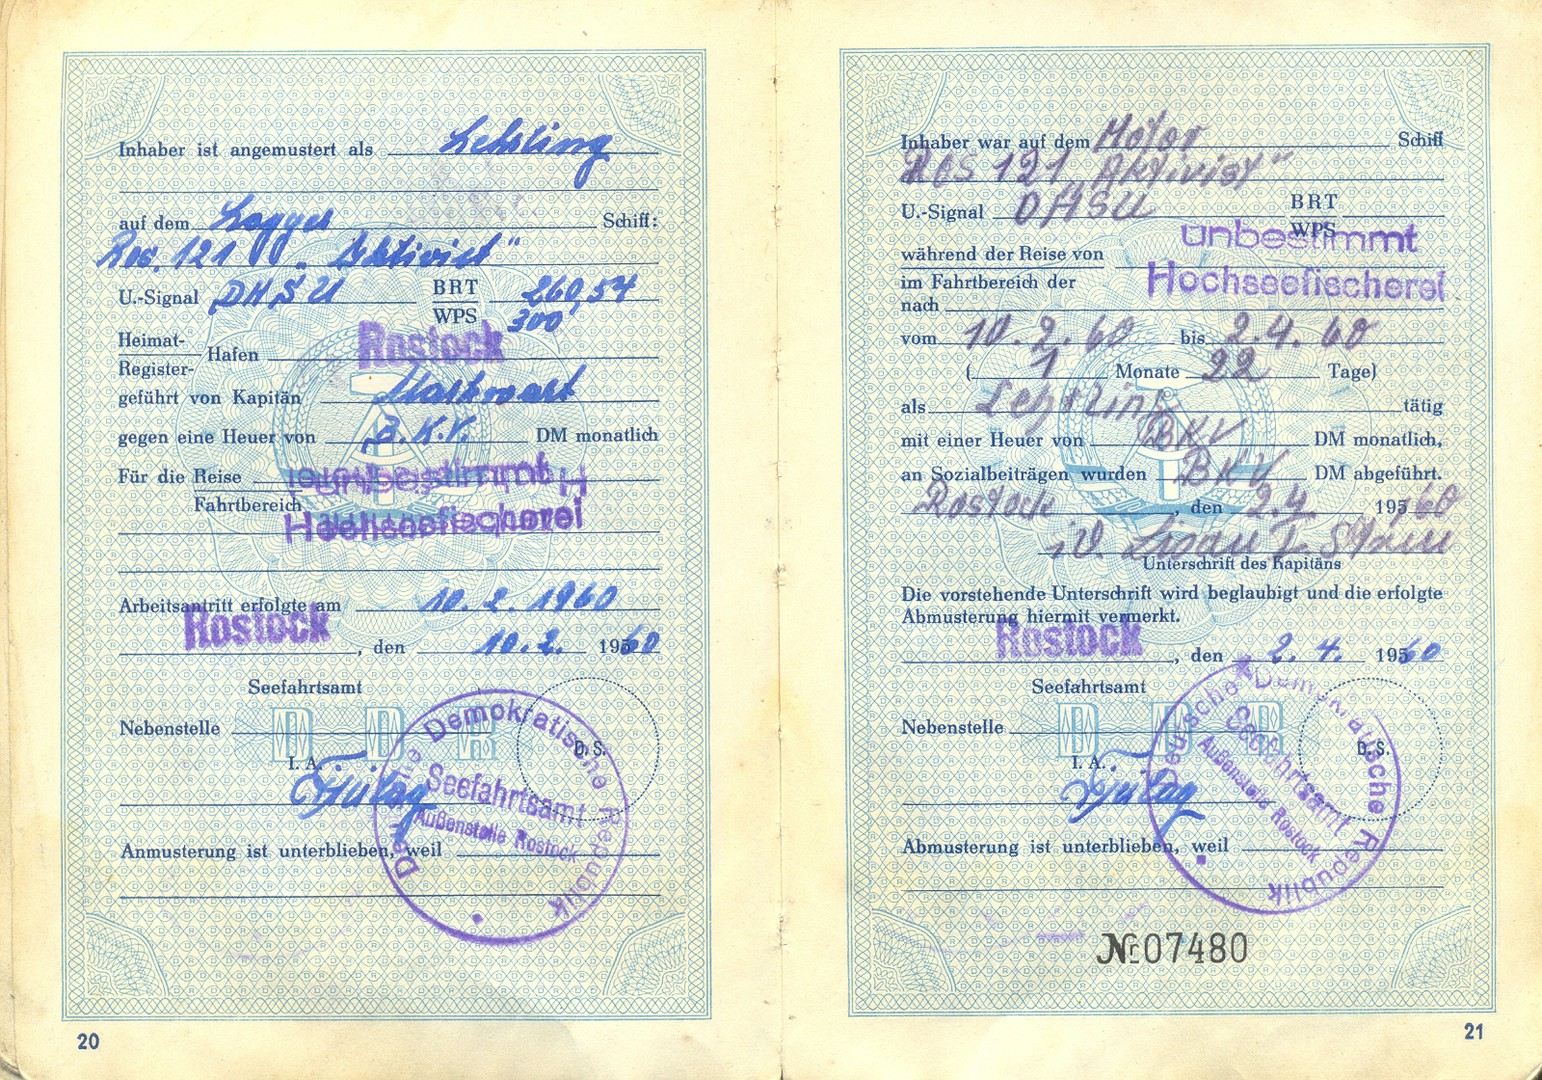 Inhaber ist angemustert als Lehrling
auf dem Logger Schiff:
Ros. 121 „Aktivist“
U.-Signal DHSU BRT 260,54
WPS 300
Heimat-
Register- Hafen Rostock
geführt von Kapitän
gegen eine Heuer von B.K.V. DM monatlich
Für die Reise unbestimmt
Fahrtbereich
Hochseefischerei
Arbeitsantritt erfolgte am 10. 2. 1960
Rostock, den 10. 2. 19560
Seefahrtsamt
Nebenstelle
I. A.
D. S.
Deutsche Demokratische Republik
Seefahrtsamt
Außenstelle Rostock
Anmusterung ist unterblieben, weil
20
Inhaber war auf dem Motor Schiff
ROS 121 Aktivist“
U.-Signal DHSU BRT
WPS
während der Reise von unbestimmt
im Fahrtbereich der Hochseefischerei
nach
vom 10. 2. 60 bis 2. 4. 60
( 1 Monate 22 Tage)
als Lehrling tätig
mit einer Heuer von BKV DM monatlich,
an Sozialbeiträgen wurden BKV DM abgeführt.
Rostock, den 2.4. 19560
Unterschrift des Kapitäns
Die vorstehende Unterschrift wird beglaubigt und die erfolgte
Abmusterung hiermit vermerkt.
Rostock, den 2. 4. 19560
Seefahrtsamt
Nebenstelle
I. A.
D. S.
Deutsche Demokratische Republik
Seefahrtsamt
Außenstelle Rostock
Abmusterung ist unterblieben, weil
Nr 07480
21